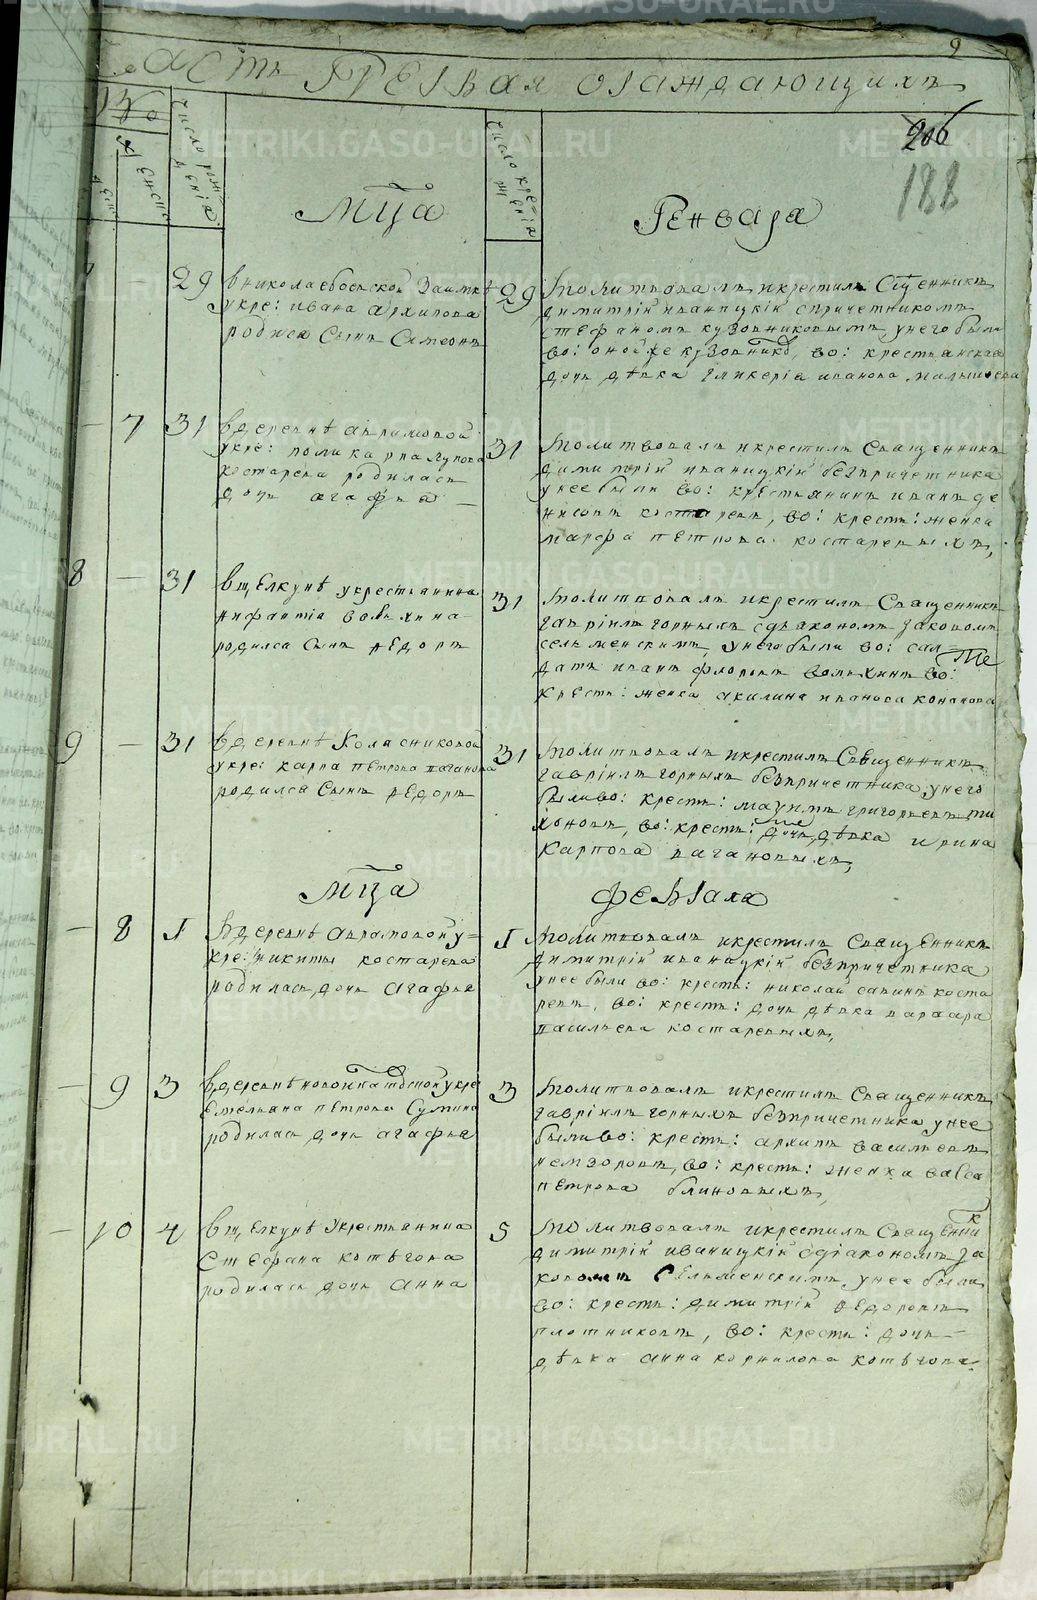 2
Часть Первая ораждающихъ
206
188
число рождения
число крещения
мца
Генваря
29
в николаевоской заимкѣ
укре: ивана архипова
родися Сынъ Симеонъ
29
молитвовалъ икрестилъ Сщенникъ
димитрій иваницкій спричетникомъ
стефаномъ кузовниковымъ унего были
во: оной же кузовниковъ, во: крестьянская
дочь дѣвка гликерія иванова малышева
7
31
вдеревнѣ аврамовой
укре: поликарпа лупова
костарева родилась
дочь агафья
31
молитвовалъ икрестилъ Священникъ
димитрій иваницкій безпричетника
унее были во: крестьянинъ иванъ де
нисовъ костаревъ, во: кресть: женка
марфа петрова костаревыхъ,
8
31
вщелкунѣ укрестьянина
нифантія волыхина
родился Сынъ ѳедоръ
31
молитвовалъ икрестилъ Священникъ
гавріилъ горныхъ сдіакономъ іаковомъ
сельменскимъ, унего были во: сол
датъ иванъ флоровъ волыхинъ во:
кресть: женка акилина иванова конакова
9
31
вдеревнѣ Колясниковой
укре: карпа петрова ваганова
родился Сынъ ѳедоръ
31
молитвовалъ икрестилъ Священникъ
гавріилъ горныхъ безпричетника, унего
были во: кресть: маѯимъ григорьевъ ти
хоновъ, во: кресть: дочь дѣвка ирина
карпова вагановыхъ,
мца
февраля
8
1
вдеревнѣ аврамовой у=
кре: никиты костарева
родилась дочь агафья
1
молитвовалъ икрестилъ Священникъ
димитрій иваницкій безпричетника
унее были во: кресть: николай савинъ коста
ревъ, во: кресть: дочь дѣвка варвара
васильева костаревыхъ,
9
3
вдеревнѣ новоипатовской укре
емельяна петрова Сумина
родилась дочь агафья
3
молитвовалъ икрестилъ Священникъ
гавріилъ горныхъ безпричетника, унее
были во: кресть: архипъ васильевъ
немзоровъ, во: кресть: женка васса
петрова блиновыхъ,
10
4
вщелкунѣ Укрестьянина
Стефана котѣгова
родилась дочь анна
5
молитвовалъ икрестилъ Священникъ
димитрій иваницкій сдіакономъ іа
ковомъ Сельменскимъ, унее были
во: кресть: димитрій ѳедоровъ
плотниковъ, во: кресть: дочь
дѣвка анна корнилова котѣгова.